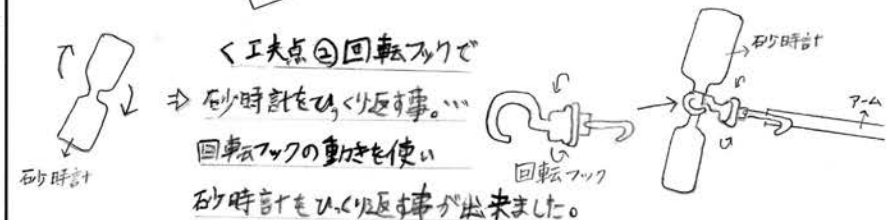 <工夫点②回転フックで
⇒ 砂時計をひっくり返す事。…
回転フックの動きを使い
砂時計をひっくり返す事が出来ました。
砂時計
回転フック
砂時計
アーム